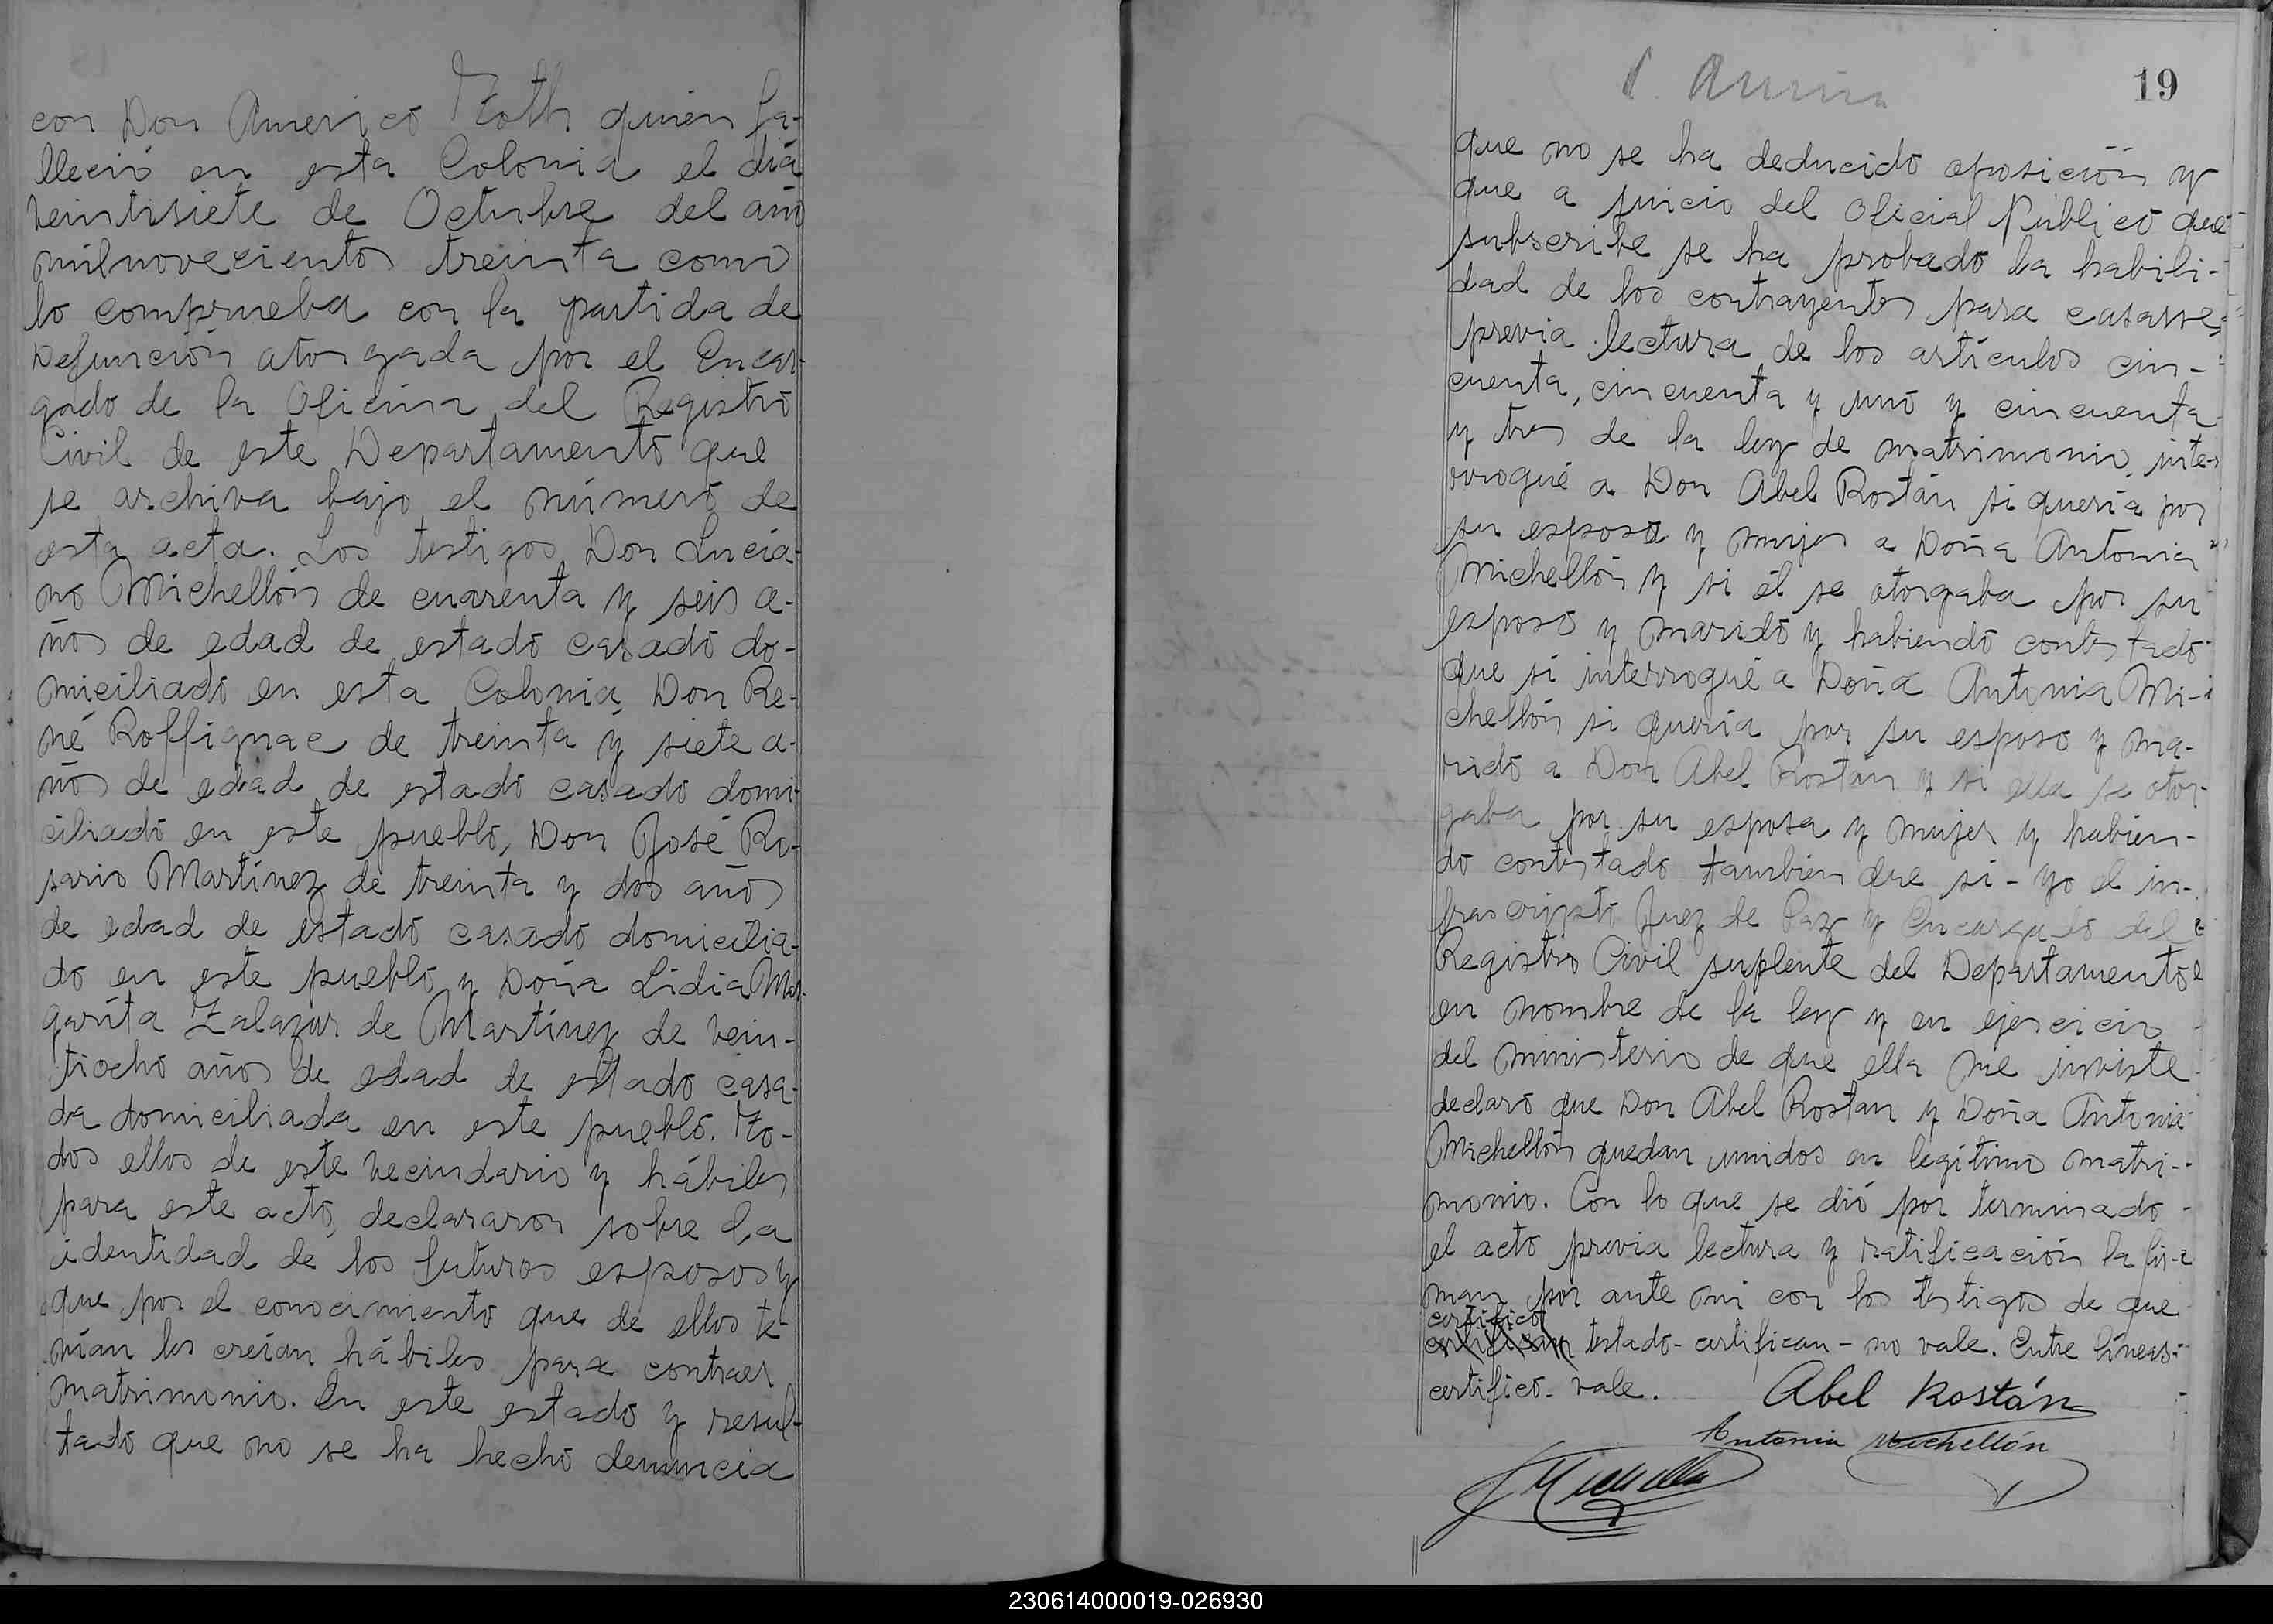 con Don Americo Toth quien fa-
lleció en esta Colonia el día
veintisiete de Octubre del año
milnovecientos treinta como
lo comprueba con la partida de
Defunción otorgada por el Encar-
gado de la Oficina del Registro
Civil de este Departamento que
se archiva bajo el número de
esta acta. Los testigos Don Lucia-
no Michellón de cuarenta y seis a-
ños de edad de estado casado do-
miciliado en esta Colonia, Don Re-
né Roffignac de treinta y siete a-
ños de edad de estado casado domi-
ciliado en este pueblo, Don José Ro-
sario Martínez de treinta y dos años
de edad de estado casado domicilia-
do en este pueblo y Doña Lidia Mar-
garita Zalazar de Martínez de vein-
tiocho años de edad de estado casa-
da domiciliada en este pueblo. To-
dos ellos de este vecindario y hábiles
para este acto, declararon sobre la
identidad de los futuros esposos y
que por el conocimiento que de ellos te
nían los creían hábiles para contraer
matrimonio. En este estado y resul-
tado que no se ha hecho denuncia
19
que no se ha deducido oposición y
que a juicio del Oficial Público que
subscribe se ha probado la habili-
dad de los contrayentes para casarse,
previa lectura de los artículos cin-
cuenta, cincuenta y uno y cincuenta
y tres de la ley de matrimonio, inte-
rrogué a Don Abel Rostán si quería por
su esposa y mujer a Doña Antonia
Michellón y si él se otorgaba por su
esposo y marido y habiendo contestado
que si interrogué a Doña Antonia Mi-
chellón si quería por su esposo y ma-
rido a Don Abel Rostán y si ella se otor-
gaba por su esposa y mujer y habien-
do contestado tambien que si - yo el in-
frascripto Juez de Paz y Encargado del
Registro Civil suplente del Departamento
en nombre de la ley y en ejercicio
del ministerio de que ella me inviste
declaro que Don Abel Rostan y Doña Antonia
Michellón quedan unidos en legítimo matri-
monio. Con lo que se dió por terminado
el acto previa lectura y ratificación la fir-
man por ante mi con los testigos de que
certifico
certifican testado - certifican - no vale. Entre líneas:
certifico - vale.
Abel Rostán
Antonia Michellón
230614000019-026930